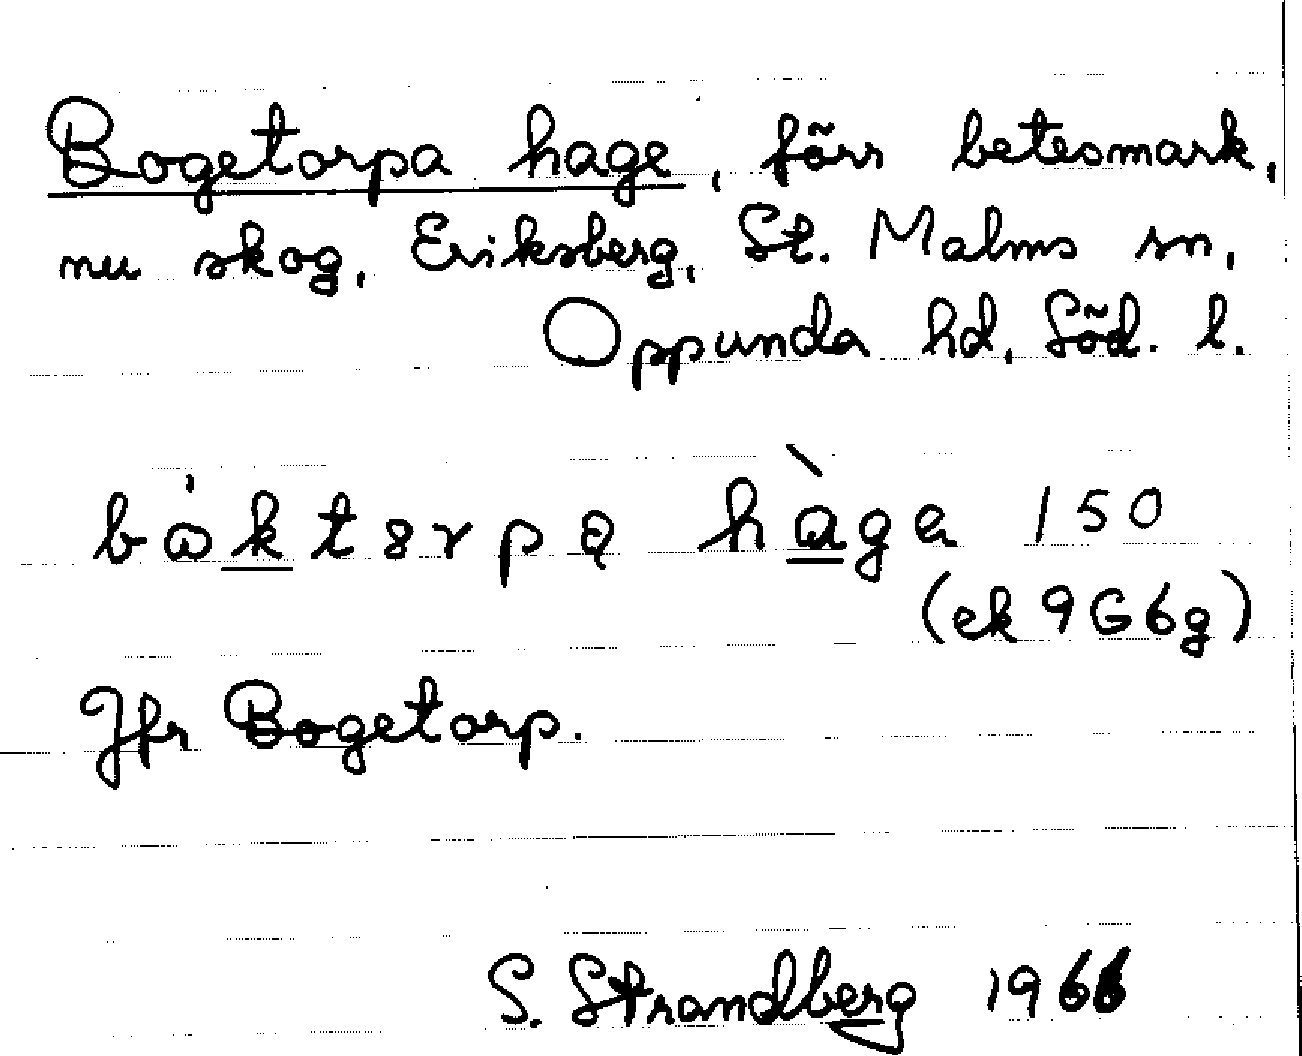 Bogetorpa hage, förr betesmark,
nu skog, Eriksberg, St. Malms sn,
Oppunda hd, Söd. l.
hage 150
(ek 9G6g)
Jfr Bogetorp.
S. Strandberg 1966